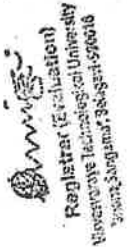 Registrar (Evaluation)
Visvesvaraya Technological University
Belagavi-590018